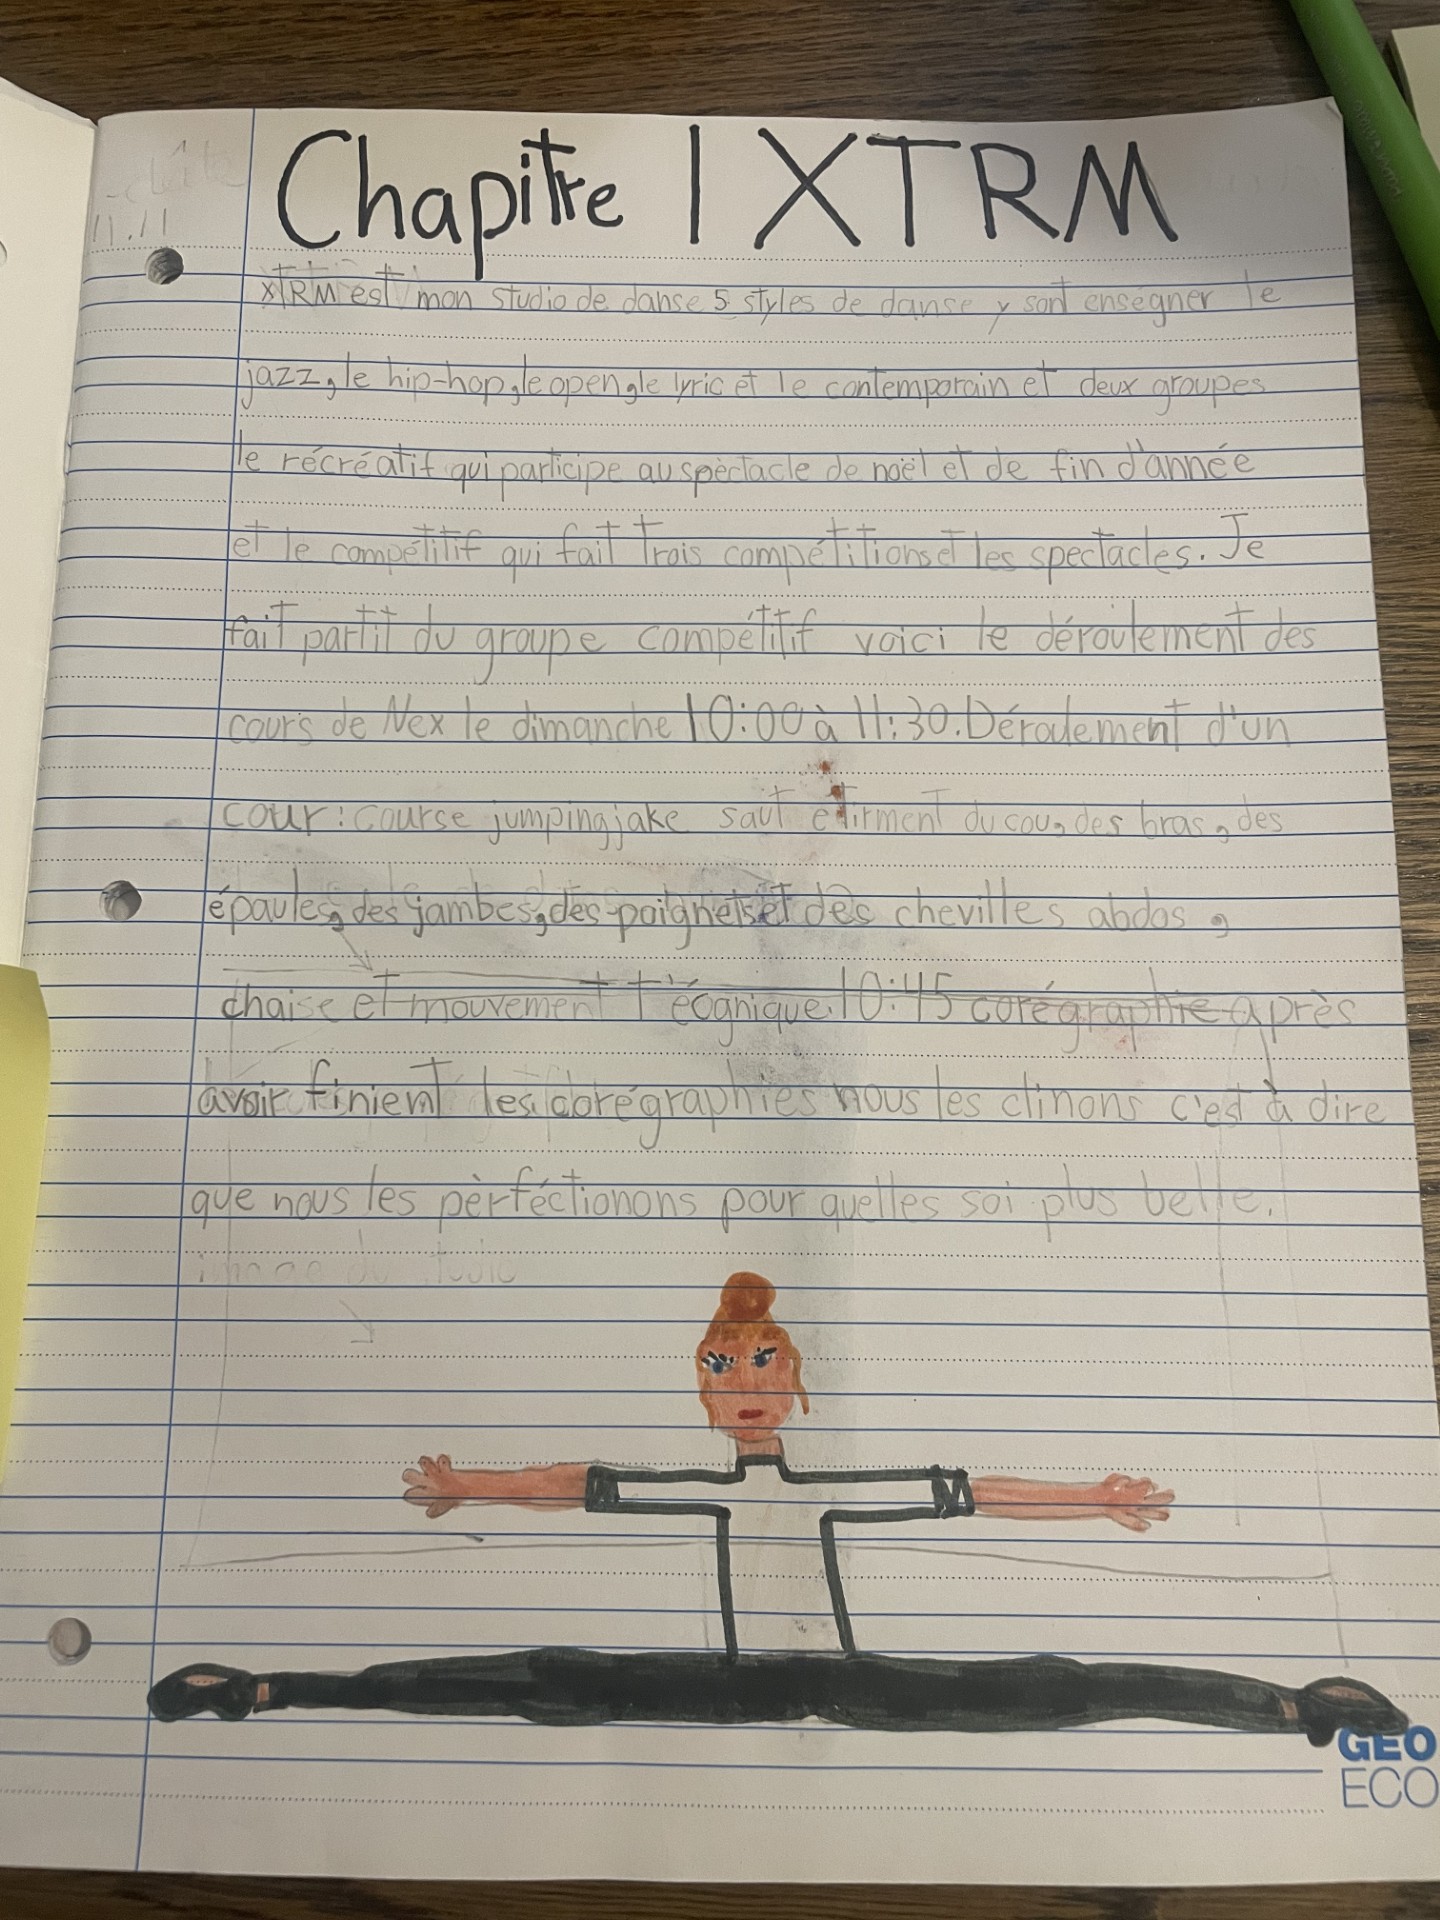 Chapitre 1 XTRM
11.11
XTRM est mon studio de danse 5 styles de danse y sont enségner le
jazz, le hip-hop, le open, le lyric et le contemporain et deux groupes
le récréatif qui participe au spèctacle de noël et de fin d'année
et le compétitif qui fait trois compétitions et les spectacles. Je
fait partit du groupe compétitif voici le déroulement des
cours de Nex le dimanche 10:00 à 11:30. Déroulement d'un
cour : course jumping jake saut etirment du cou, des bras, des
épaules, des jambes, des poignets et des chevilles abdos,
chaise et mouvement técgnique. 10:45 corégraphie après
avoir finient les corégraphies nous les clinons c'est à dire
que nous les pèrféctionons pour quelles soi plus belle.
image du studio
GEO
ECO